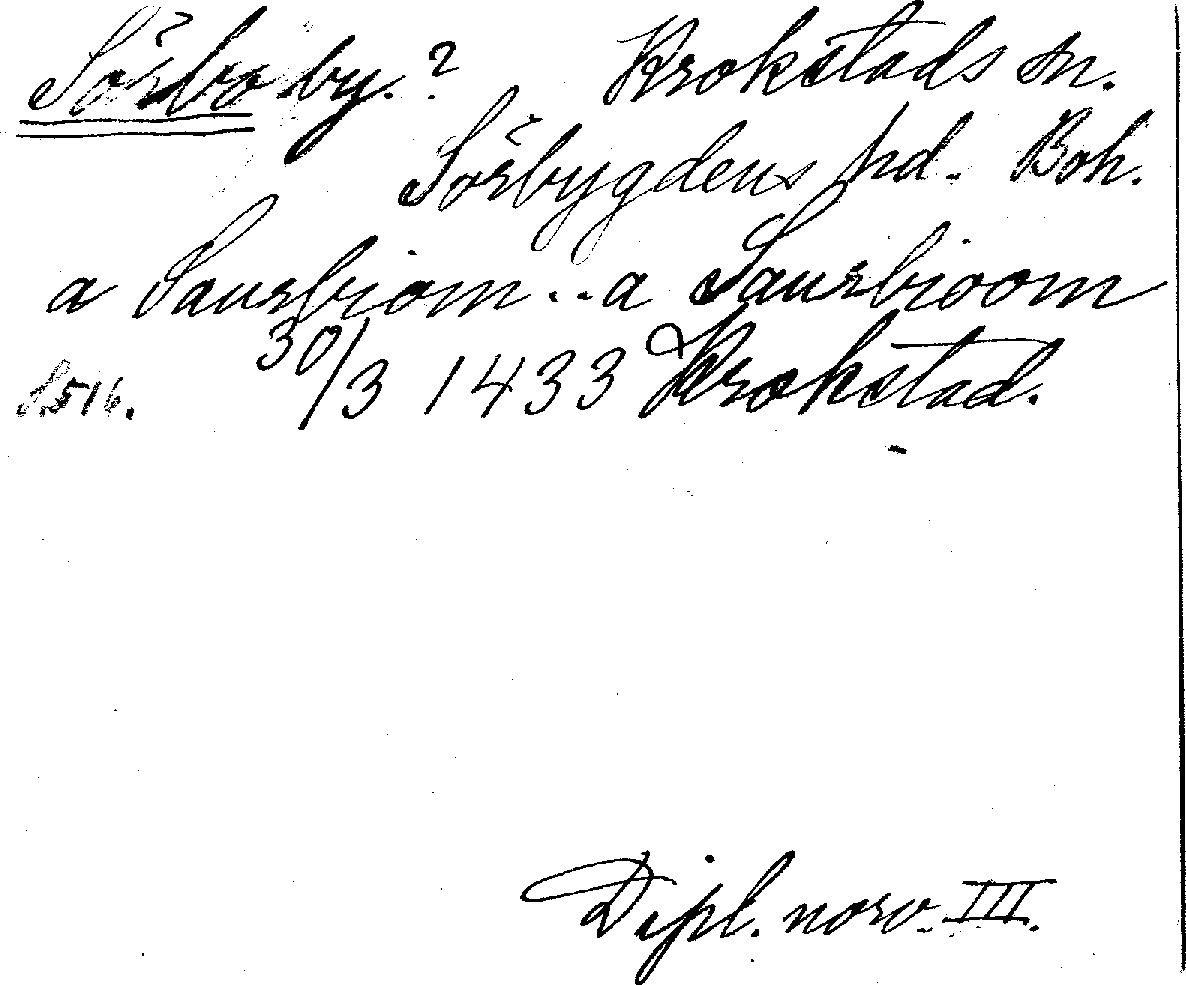 Sörboby.? Krokstads sn.
Sörbygdens hd. Boh.
a Saurbiom...a Saurbioom
S.516. 30/3 1433 Krokstad.
Dipl. norv. III.